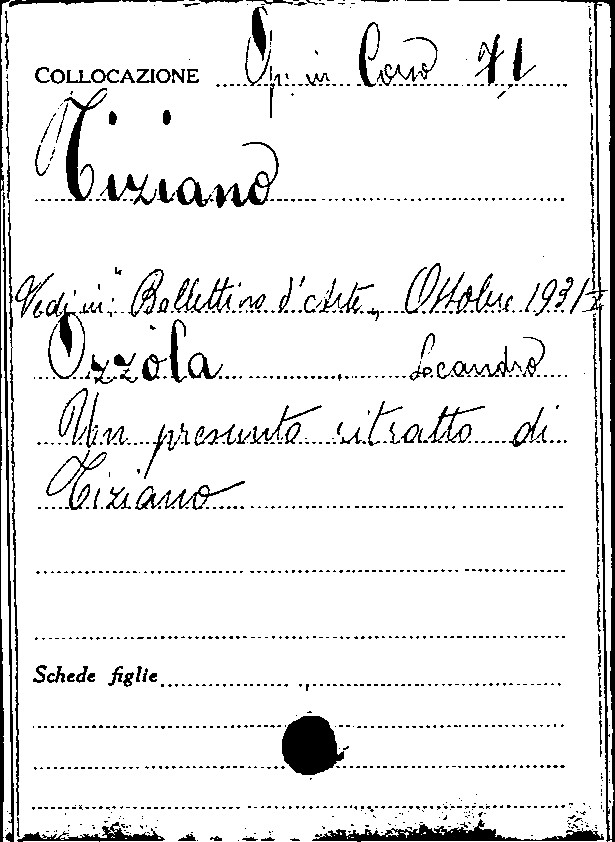 COLLOCAZIONE Op. in Corso 71
Tiziano
Vedi in: "Bollettino d'Arte„ Ottobre 1931
Ozzòla Leandro
Un presunto ritratto di
Tiziano
Schede figlie